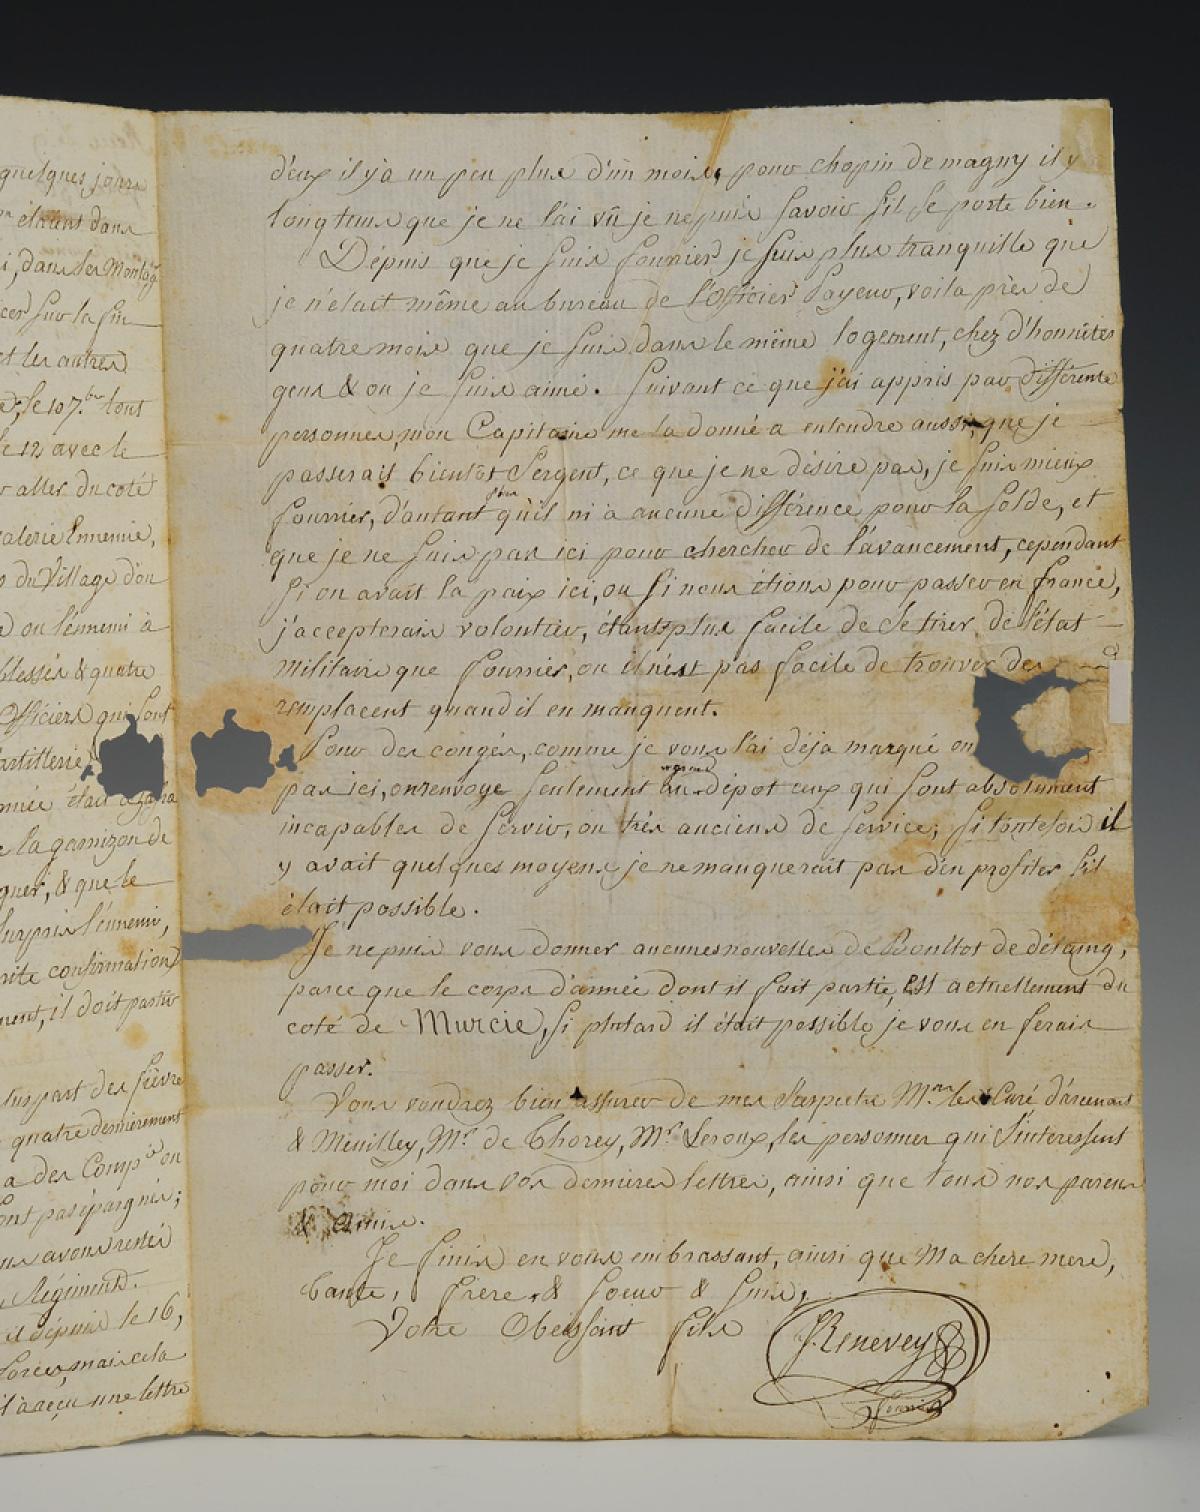 quelques jours
étaient dans
i, dans les Montag
cer sur la fin
et les autres
le 10 7.bre tout
le 12 avec le
aller du coté
calerie Ennemie,
du Village d'ou
ou l'ennemi à
blessés & quatre
Officiers qui sont
artillerie
mée était
la garnizon de
gner, & que le
surpris l'ennemi,
rite confirmation
ment, il doit partir
part des fièvre
quatre dernièrement
a des Comp.ies ou
ont pas épargnés;
us avons resté
Régiment.
il depuis le 16,
forces, mais cela
il a reçu une lettre
d'eux il y a un peu plus d'un mois, pour chopin de magny il y
longtems que je ne l'ai vû je ne puis savoir s'il se porte bien.
Dépuis que je suis fourrier je suis plus tranquille que
je n'était même au bureau de l'Officier Payeur, voila près de
quatre mois que je suis dans le même logement, chez d'honnêtes
gens & ou je suis aimé. Suivant ce que j'ai appris par différente
personnes, mon Capitaine me la donné a entendre aussi, que je
passerais bientôt Sergent, ce que je ne désire pas, je suis mieux
fourrier, d'autant plus qu'il ni a aucune différence pour la solde, et
que je ne suis pas ici pour chercher de l'avancement, cependant
si on avait la paix ici, ou si nous étions pour passer en france,
j'accepterais volontier, étant plus facile de se tirer de l'état
militaire que fourrier, ou il n'est pas facile de trouver des
remplacent quand il en manquent.
Pour des congés, comme je vous l'ai déja marqué on
pas ici, on renvoye seulement au dépot ceux qui sont absolument
incapables de servir, ou très anciens de service; si toutefois il
y avait quelques moyens je ne manquerait pas d'en profiter s'il
était possible.
Je ne puis vous donner aucunes nouvelles de Boultot de détaing,
parce que le corps d'armée dont il fait partie, est actuellement du
coté de Murcie, si plutard il était possible je vous en ferais
passer.
Vous voudrez bien assurer de mes respectre M.rs les Curé d'arcenant
& Meuilley, M.r de Thorey, M.r Leroux, les personnes qui s'interessent
pour moi dans vos dernières lettres, ainsi que tous nos parens
& amis.
Je finis en vous embrassant, ainsi que Ma chere mere,
tante, frère, & soeur & suis,
Votre Obeissant fils
J. Renevey
fourrier